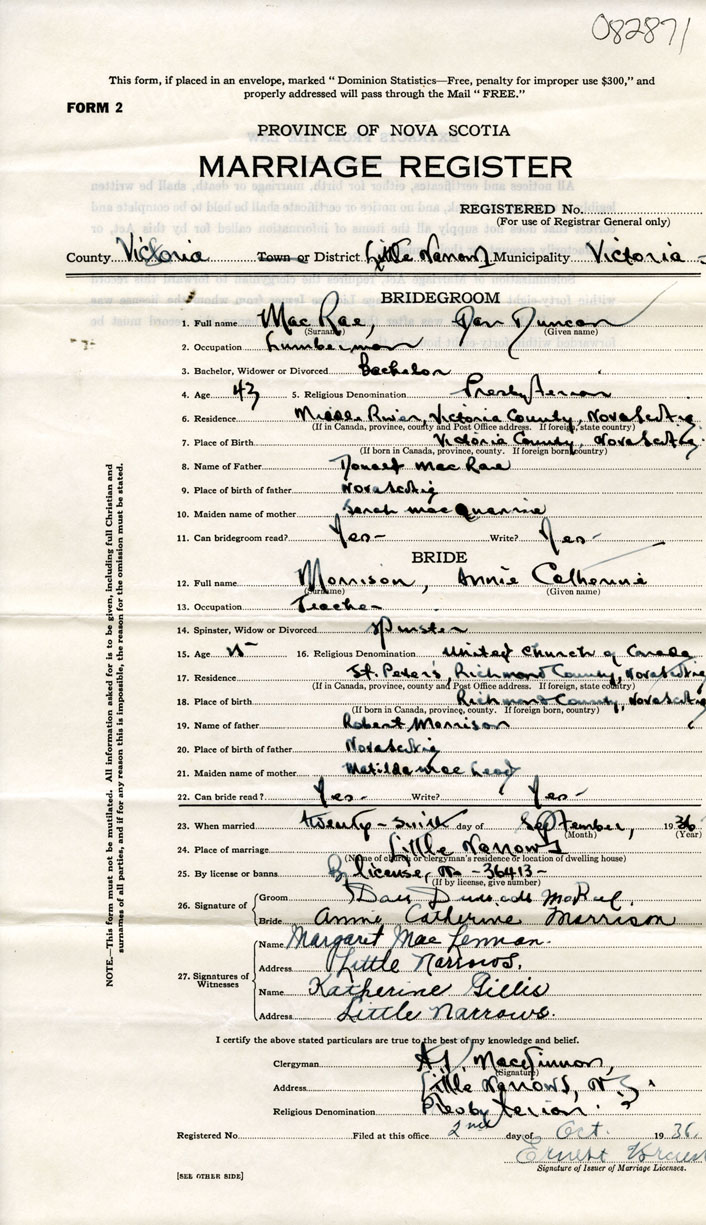 082871
This form, if placed in an envelope, marked “ Dominion Statistics—Free, penalty for improper use $300,” and
properly addressed will pass through the Mail “ FREE.”
FORM 2
PROVINCE OF NOVA SCOTIA
MARRIAGE REGISTER
REGISTERED No.
(For use of Registrar General only)
County Victoria Town or District Little Narrows Municipality Victoria
BRIDEGROOM
1. Full name Mac Rae, Dan Duncan
(Surname) (Given name)
2. Occupation Lumberman
3. Bachelor, Widower or Divorced Bachelor
4. Age 43 5. Religious Denomination Presbyterian
6. Residence Middle River, Victoria County, Nova Scotia
(If in Canada, province, county and Post Office address. If foreign, state country)
7. Place of Birth Victoria County, Nova Scotia
(If born in Canada, province, county. If foreign born, country)
8. Name of Father Donald Mac Rae
9. Place of birth of father Nova Scotia
10. Maiden name of mother Sarah MacQuarrie
11. Can bridegroom read? Yes- Write? Yes-
BRIDE
12. Full name Morrison, Annie Catherine
(Surname) (Given name)
13. Occupation Teacher
14. Spinster, Widow or Divorced Spinster
15. Age 16. Religious Denomination United Church of Canada
17. Residence St. Peter's, Richmond County, Nova Scotia
(If in Canada, province, county and Post Office address. If foreign, state country)
18. Place of birth Richmond County, Nova Scotia
(If born in Canada, province, county. If foreign born, country)
19. Name of father Robert Morrison
20. Place of birth of father Nova Scotia
21. Maiden name of mother Matilda Mac Leod
22. Can bride read? Yes- Write? Yes-
23. When married twenty-sixth day of September, 1936
(Month) (Year)
24. Place of marriage Little Narrows
(Name of church or clergyman's residence or location of dwelling house)
25. By license or banns By license, No -36413-
(If by license, give number)
26. Signature of Groom Dan Duncan McRae
Bride Annie Catherine Morrison
27. Signatures of Witnesses
Name Margaret Mac Lennan.
Address Little Narrows.
Name Katherine Gillis
Address Little Narrows.
I certify the above stated particulars are true to the best of my knowledge and belief.
Clergyman A.D. MacKinnon,
(Signature)
Address Little Narrows, N.S.
Religious Denomination Presbyterian.
Registered No. Filed at this office 2nd day of Oct. 1936.
Ernest
Signature of Issuer of Marriage Licenses.
[SEE OTHER SIDE]
NOTE.—This form must not be mutilated. All information asked for is to be given, including full Christian and
surnames of all parties, and if for any reason this is impossible, the reason for the omission must be stated.